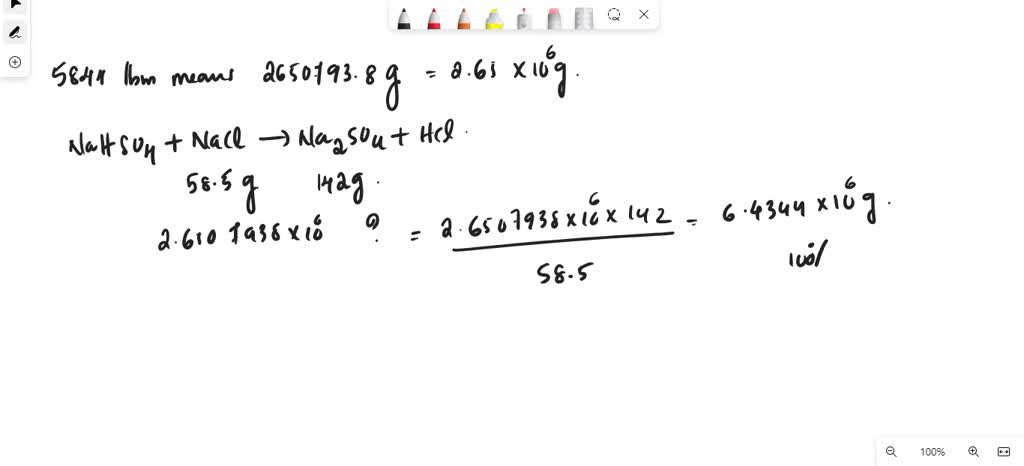 5844 lbm means 2650793.8 g = 2.65 × 10⁶ g.
NaHSO₄ + NaCl → Na₂SO₄ + HCl.
58.5 g 142 g.
2.6507938 × 10⁶ ? = 2.6507938 × 10⁶ × 142 / 58.5 = 6.4344 × 10⁶ g.
100%
100%